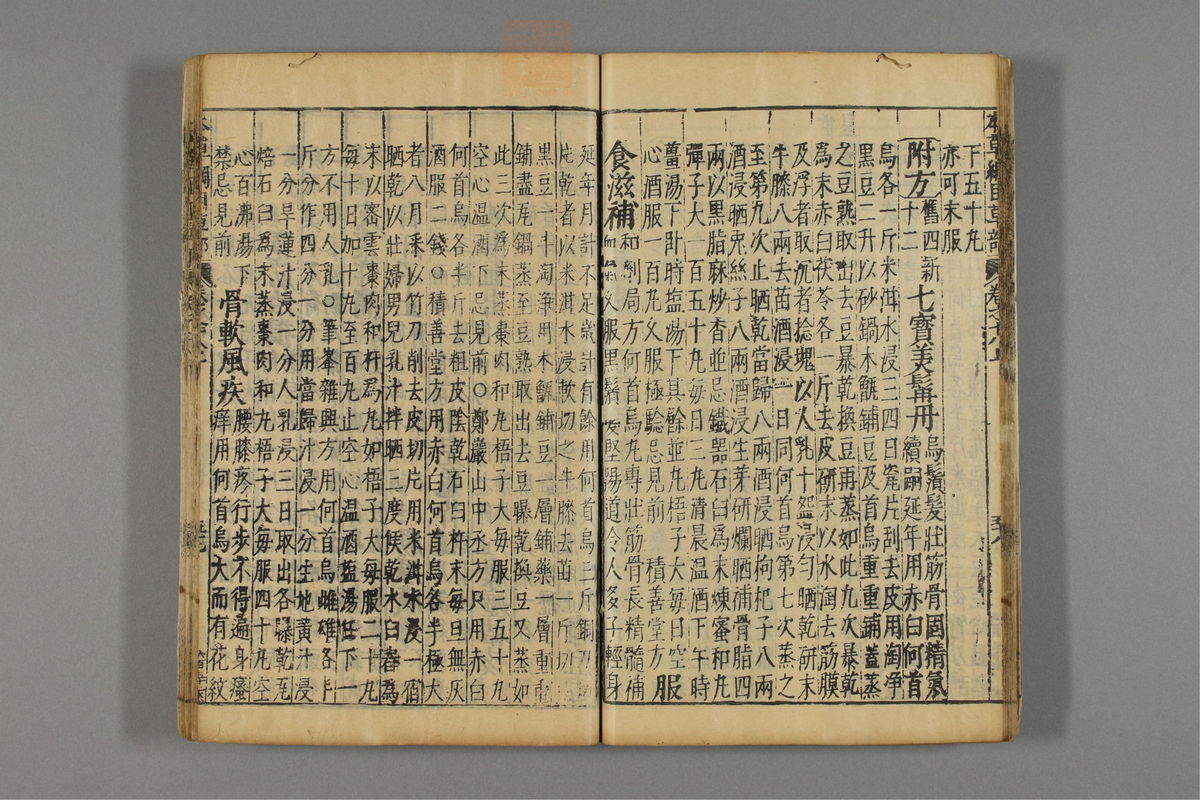 下五十丸
亦可末服
附方舊四新十二七寶美髯丹烏鬚髮壯筋骨固精氣續嗣延年用赤白何首
烏各一斤米泔水浸三四日瓷片刮去皮用淘淨
黑豆二升以砂鍋木甑鋪豆及首烏重重鋪蓋蒸
之豆熟取出去豆暴乾換豆再蒸如此九次暴乾
為末赤白茯苓各一斤去皮研末以水淘去筋膜
及浮者取沉者捻塊以人乳十盌浸勻晒乾研末
牛膝八兩去苗酒浸一日同何首烏第七次蒸之
至第九次止晒乾當歸八兩酒浸晒枸杞子八兩
酒浸晒兔絲子八兩酒浸生芽研爛晒補骨脂四
兩以黑脂麻炒香並忌鐵器石臼為末煉蜜和丸
彈子大一百五十丸每日三丸清晨溫酒下午時
薑湯下臥時塩湯下其餘並丸梧子大每日空
心酒服一百丸久服極驗忌見前積善堂方服
食滋補和劑局方何首烏丸專壯筋骨長精髓補血氣久服黑鬚髮堅陽道令人多子輕身
延年月計不足歲計有餘用何首烏三斤銅刀切
片乾者以米泔水浸軟切之牛膝去苗一斤切
黑豆一斗淘淨用木甑鋪豆一層鋪藥一層重重
鋪盡瓦鍋蒸至豆熟取出去豆曝乾換豆又蒸如
此三次為末蒸棗肉和丸梧子大每服三五十丸
空心溫酒下忌見前○鄭巖山中丞方只用赤白
何首烏各半斤去粗皮陰乾石臼杵末每旦無灰
酒服二錢○積善堂方用赤白何首烏各半極大
者八月采以竹刀削去皮切片用米泔水浸一宿
晒乾以壯婦男兒乳汁拌晒三度候乾木臼舂為
末以密雲棗肉和杵為丸如梧子大每服二十丸
每十日加十丸至百丸止空心溫酒塩湯任下一
方不用人乳○筆峯雜興方用何首烏雌雄各半
斤分作四分一分用當歸汁浸一分生地黃汁浸
一分旱蓮汁浸一分人乳浸三日取出各曝乾瓦
焙石臼為末蒸棗肉和丸梧子大每服四十丸空
心百沸湯下
禁忌見前骨軟風疾腰膝疼行步不得遍身瘙癢用何首烏大而有花紋